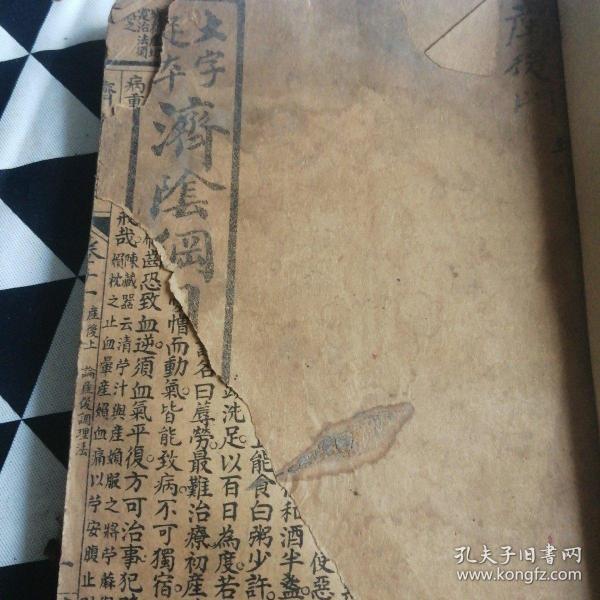 產後
大字
足本
濟陰綱
洗足以百日為度若
能食白粥少許
和酒半盞
使惡
名曰蓐勞最難治療初產
憎而動氣皆能致病不可獨宿
恐致血逆須血氣平復方可治事犯
哉陳藏器云清苧汁與產婦服之將苧蔴
枕之止血暈產婦血痛以苧安腹止
病重
卷十一 產後上 論產後調理法
孔夫子旧书网
www.kongfz.com